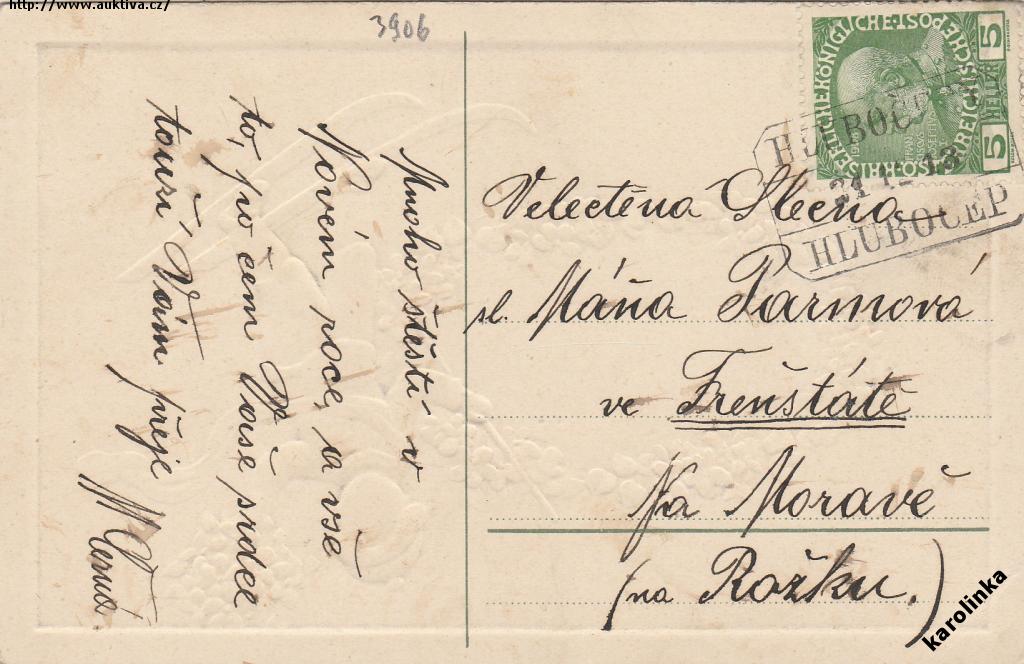 http://www.auktiva.cz/
3906
Mnoho štěstí v
Novém roce, a vše
to, po čem Vaše srdce
touží Vám přeje
5 HELLER 5
HLUBOČEP
HLUBOČEP
Velectěná Slečna
sl. Máňa Parmová
ve Frenštátě
Na Moravě
(na Rožku.)
karolinka